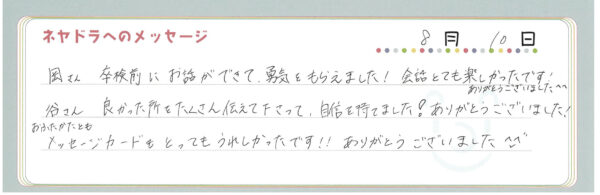 ネヤドラへのメッセージ
8月10日
岡さん 卒検前にお話ができて、勇気をもらえました！会話とても楽しかったです！
ありがとうございました^^
谷さん 良かった所をたくさん伝えて下さって、自信を持てました！ありがとうございました！
おふたかたとも
メッセージカードもとってもうれしかったです!! ありがとうございました^^